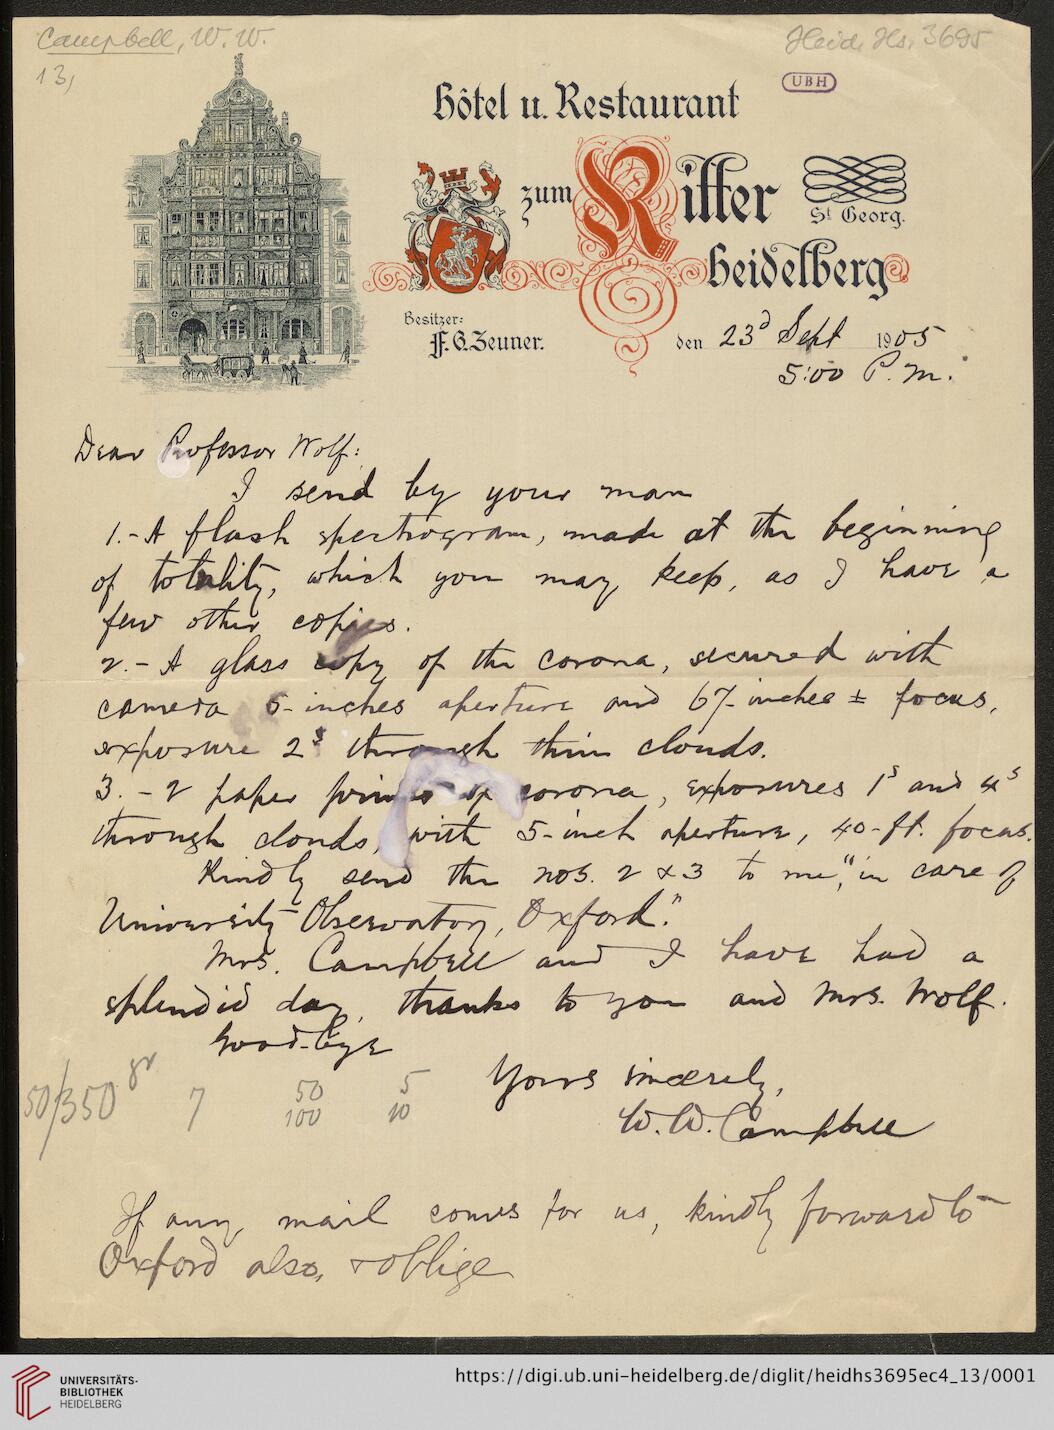 Campbell, W. W.
13,
Heid. Hs. 3695
UBH
Hôtel u. Restaurant
zum Ritter
St Georg.
Heidelberg
Besitzer:
F. G. Zeuner.
den 23d Sept 1905
5:00 P.M.
Dear Professor Wolf:
I send by your man
1.- A flash spectrogram, made at the beginning
of totality, which you may keep, as I have a
few other copies.
2.- A glass copy of the corona, secured with
camera 5-inches aperture and 67-inches ± focus,
exposure 2s through thin clouds.
3.- 2 paper prints of corona, exposures 1s and 4s
through clouds, with 5-inch aperture, 40-ft. focus.
Kindly send the nos. 2 & 3 to me, "in care of
University Observatory, Oxford."
Mrs. Campbell and I have had a
splendid day, thanks to you and Mrs. Wolf.
Good-bye
Yours sincerely,
W. W. Campbell
50/350 gr 7 50 5
100 10
If any mail comes for us, kindly forward to
Oxford also, & oblige
UNIVERSITÄTS-
BIBLIOTHEK
HEIDELBERG
https://digi.ub.uni-heidelberg.de/diglit/heidhs3695ec4_13/0001